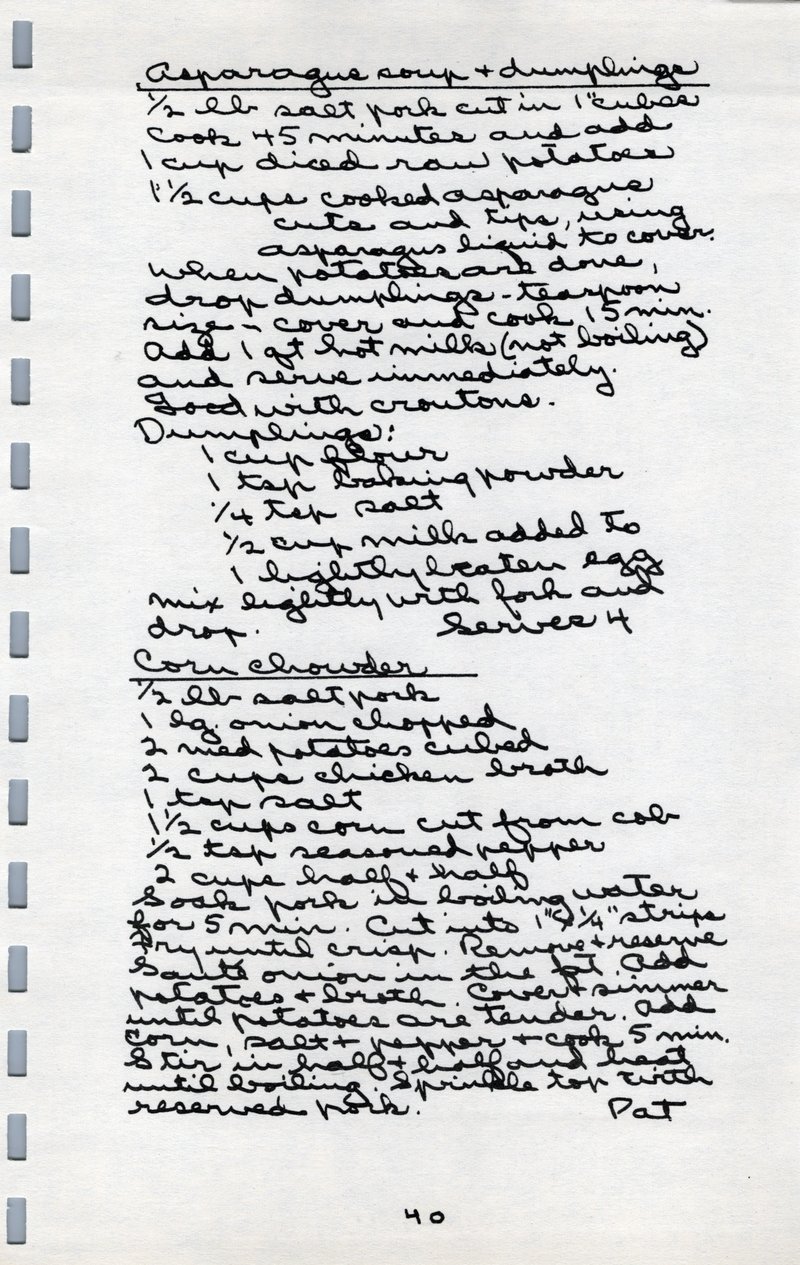 Asparagus soup + dumplings
1/2 lb salt pork cut in 1" cubes
Cook 45 minutes and add
1 cup diced raw potatoes
1 1/2 cups cooked asparagus
cuts and tips, using
asparagus liquid to cover.
When potatoes are done,
drop dumplings - teaspoon
size - cover and cook 15 min.
Add 1 qt hot milk (not boiling)
and serve immediately.
Good with croutons.
Dumplings:
1 cup flour
1 tsp baking powder
1/4 tsp salt
1/2 cup milk added to
1 lightly beaten egg
mix lightly with fork and
drop. Serves 4
Corn chowder
1/2 lb salt pork
1 lg. onion chopped
2 med potatoes cubed
2 cups chicken broth
1 tsp salt
1 1/2 cups corn cut from cob
1/2 tsp seasoned pepper
2 cups half + half
Soak pork in boiling water
for 5 min. Cut into 1" x 1/4" strips
Fry until crisp. Remove + reserve
Sauté onion in the fat. Add
potatoes + broth. Cover + simmer
until potatoes are tender. Add
Corn, salt + pepper + cook 5 min.
Stir in half + half and heat
until boiling. Sprinkle top with
reserved pork. Pat
40